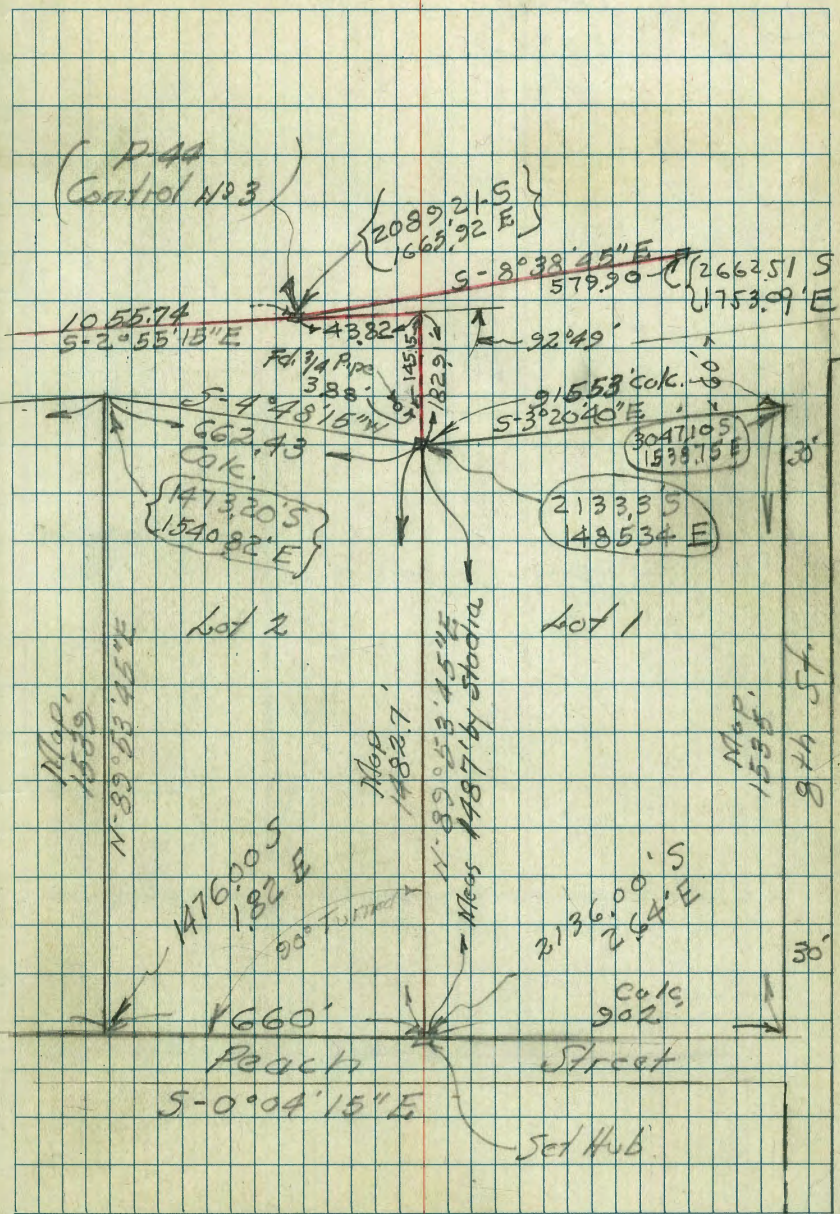 P-44
Control No 3
2089.21 S
1665.92 E
S-8°38'45"E
579.90
2662.51 S
1753.09' E
1055.74
S-2°55'15"E
43.82
92°49'
Fd. 3/4 Pipe
3.88'
145.5
182.92
915.53' Calc.
S-3°20'40"E
60'
S-4°48'15"W
662.43
Calc.
3047.10 S
1538.75 E
30'
1473.20'S
1540.82' E
2133.3'S
1485.34 E
Lot 2
Lot 1
Map.
1539
N-89°53'45"E
Map
1482.7'
N-89°53'45"E
Meas 1487' by Stadia
Map.
1535
9th St.
1476.00 S
1.82 E
90° Turned
2136.00' S
2.64' E
30'
660'
Calc
902'
Peach Street
S-0°04'15"E
Set Hub